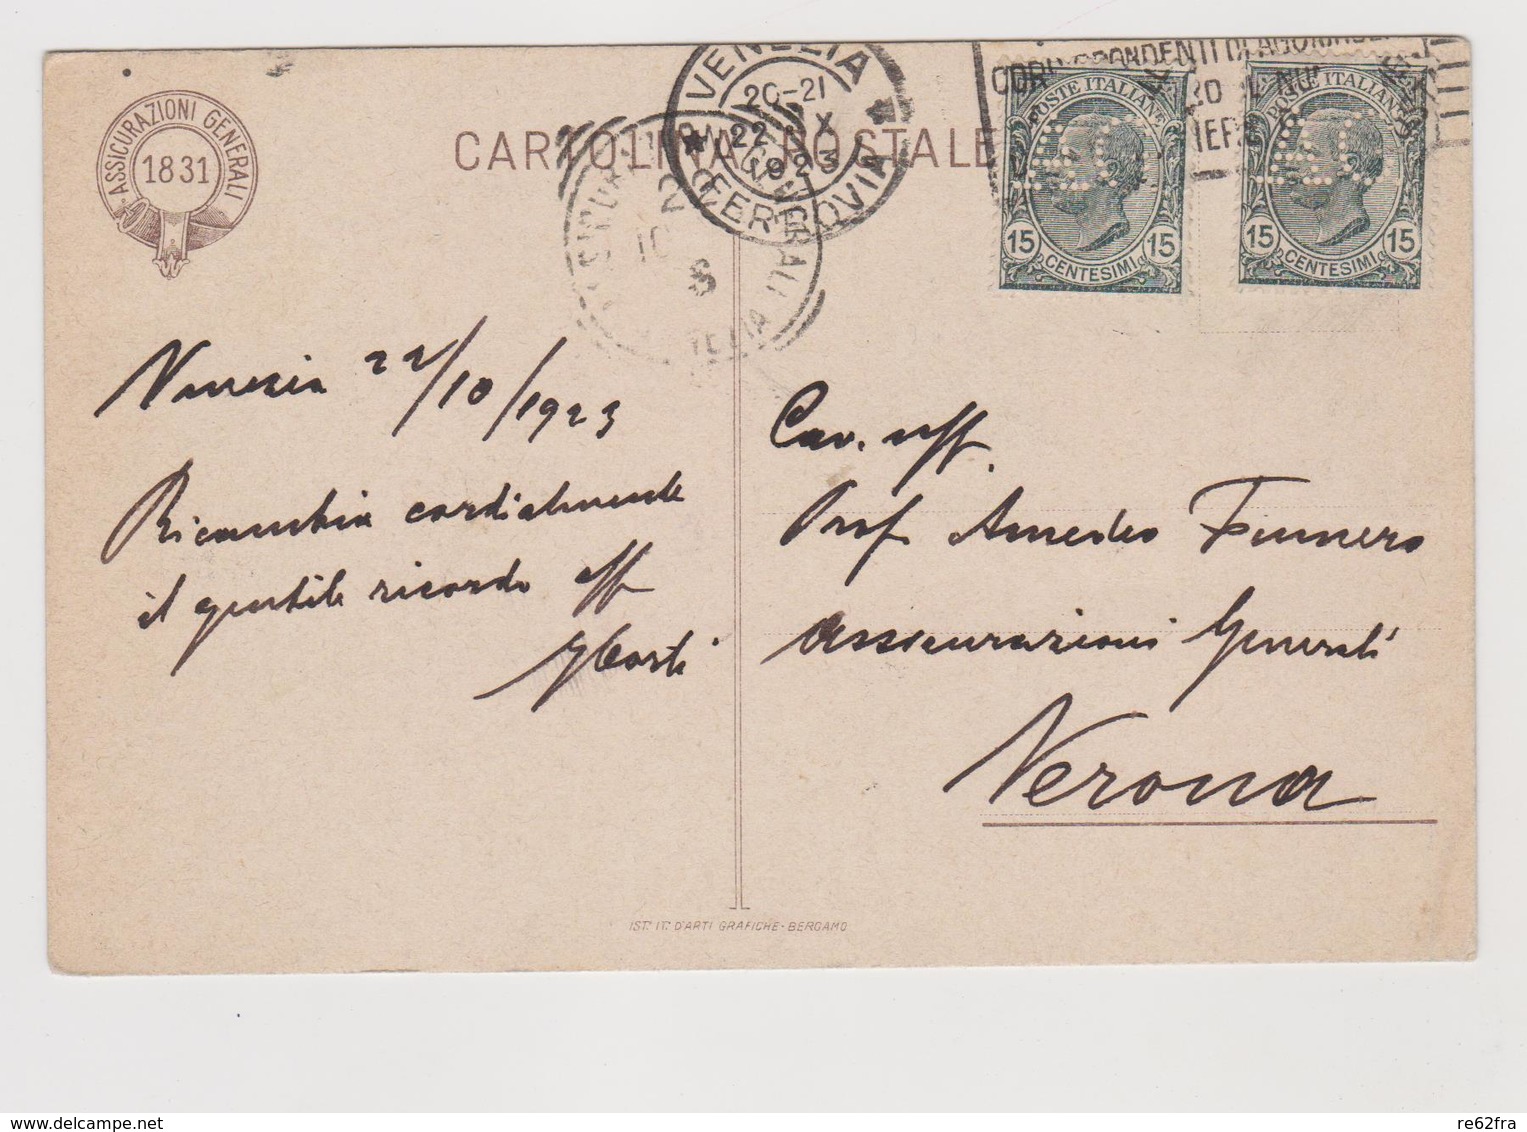 ASSICURAZIONI GENERALI
1831
CARTOLINA POSTALE
VENEZIA
20-21
22 X
1923
FERROVIA
POSTE ITALIANE
15 15
CENTESIMI
POSTE ITALIANE
15 15
CENTESIMI
Venezia 22/10/1923
Ricambia cordialmente
il gentile ricordo aff
Cav. uff.
Prof. Amedeo Fumero
Assicurazioni Generali
Verona
IST. IT. D'ARTI GRAFICHE-BERGAMO
delcampe.net
re62fra